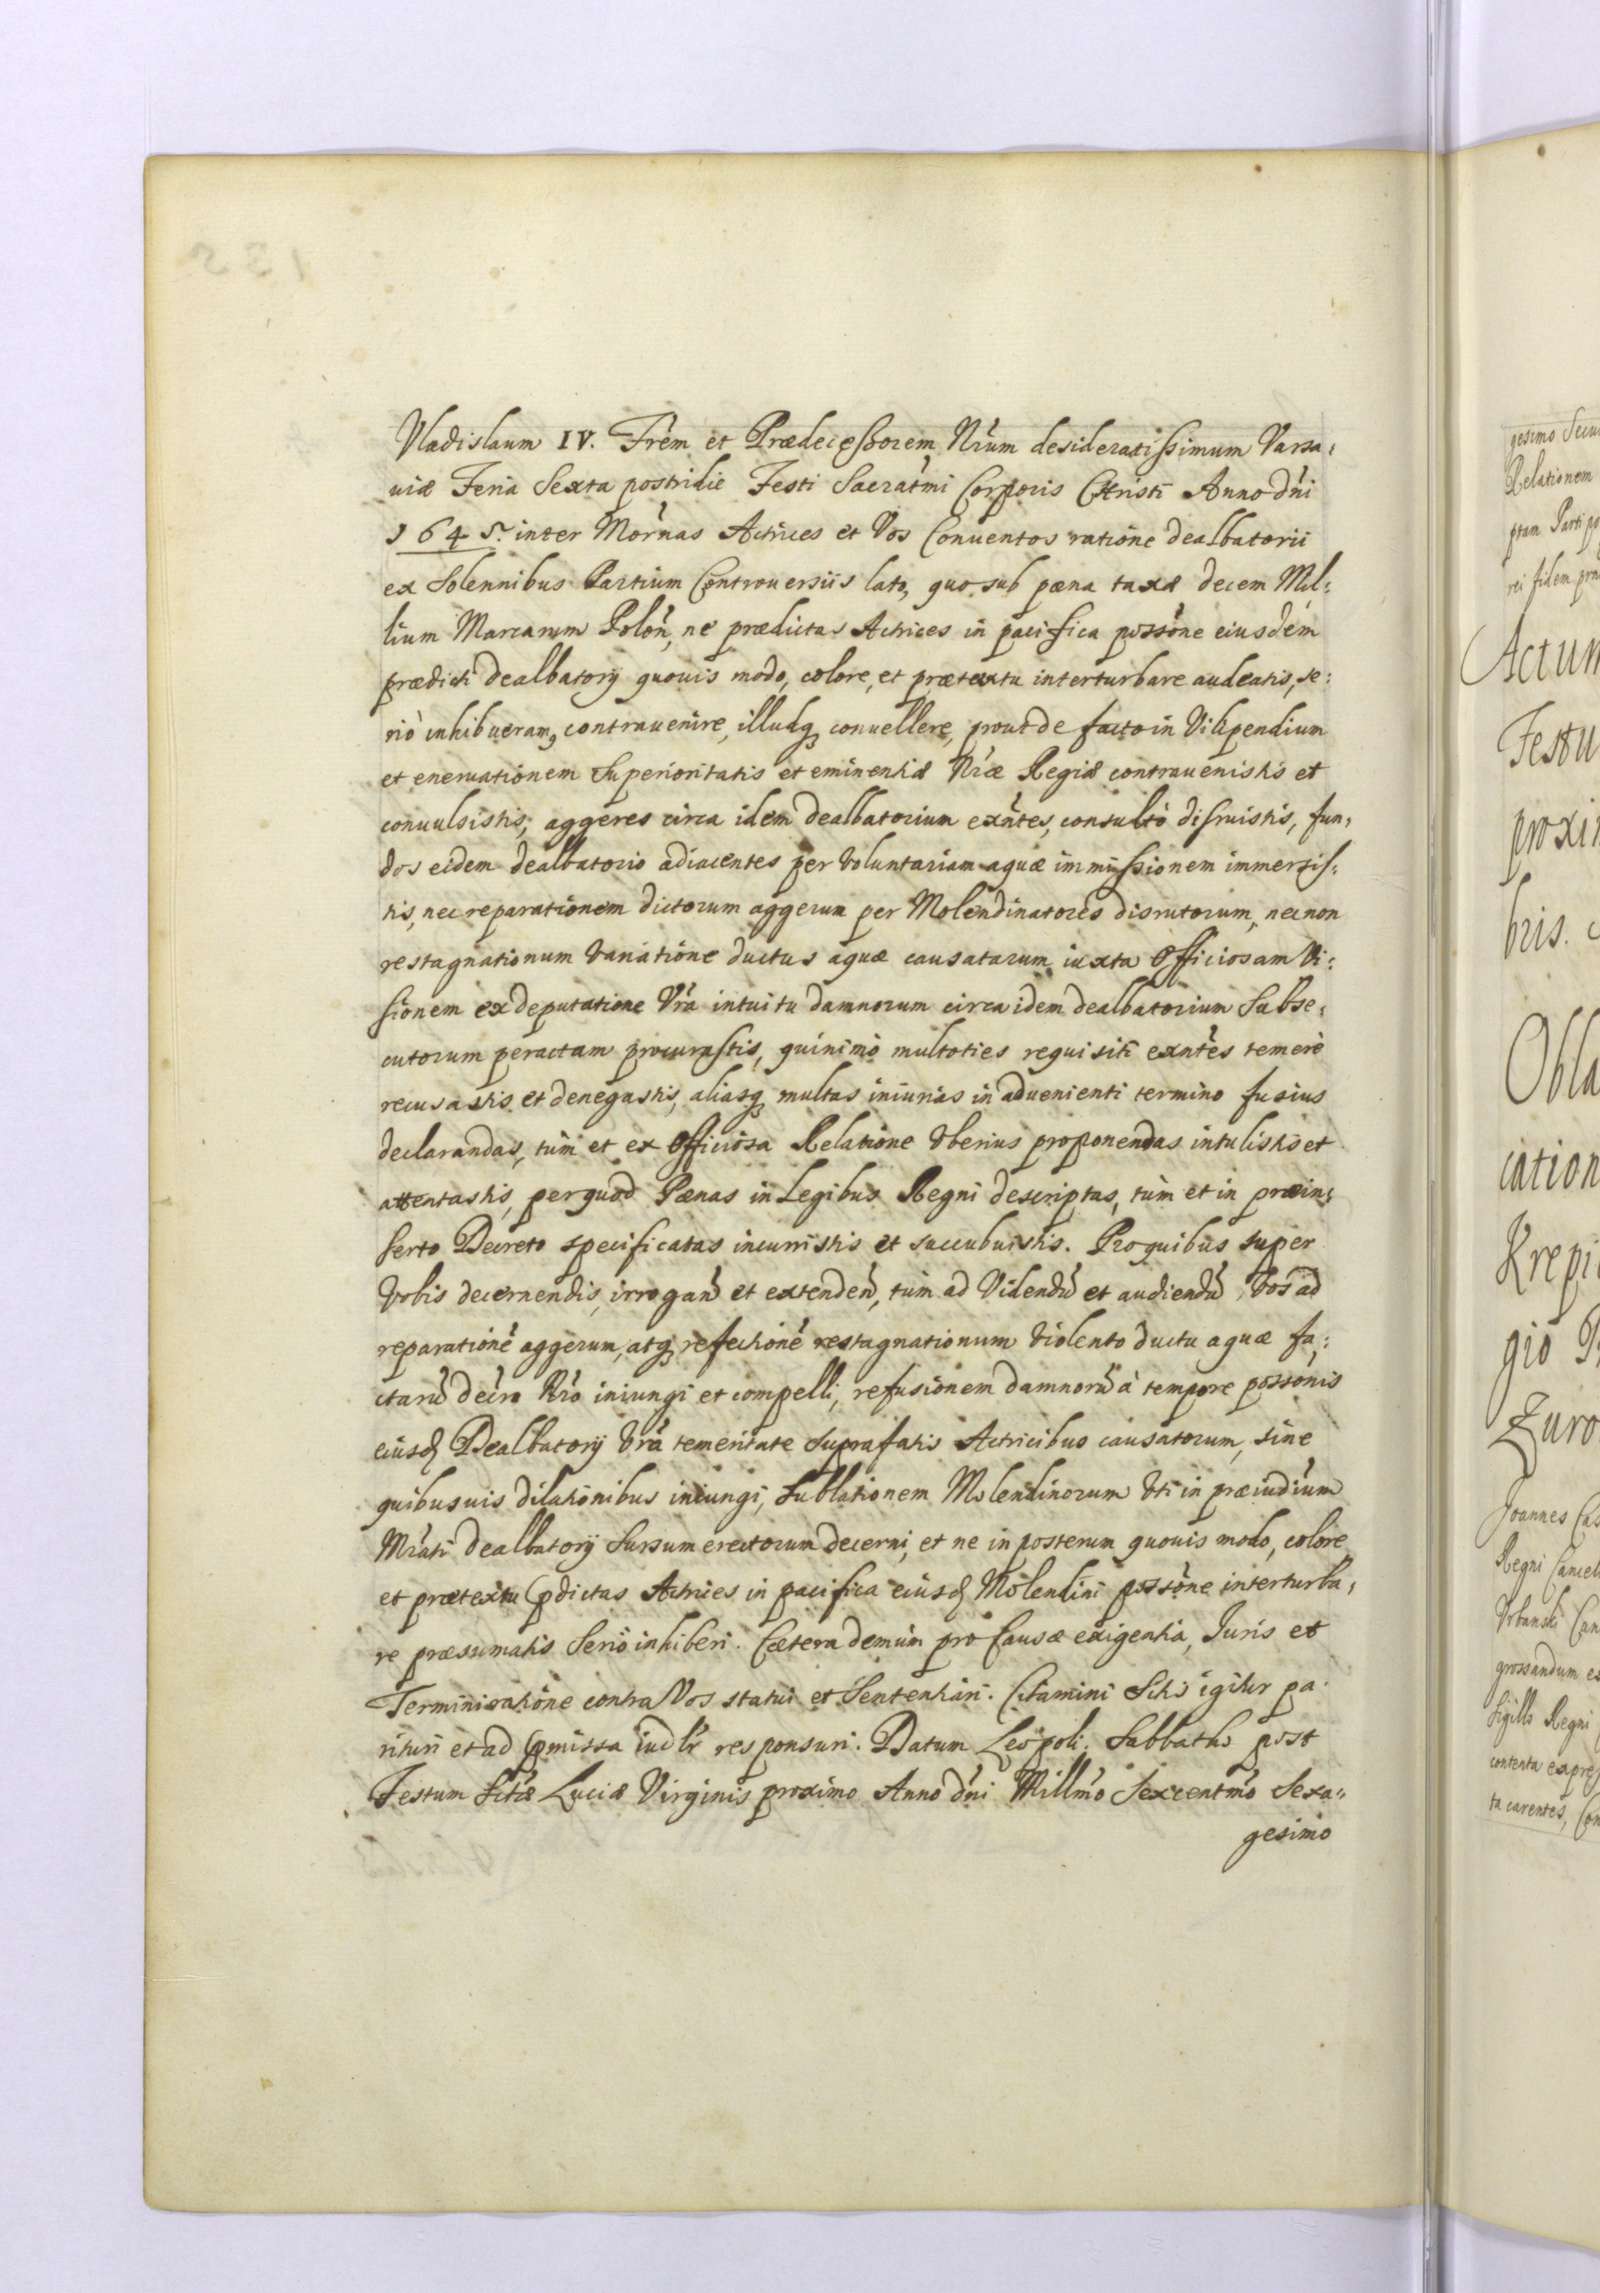 Vladislaum IV. Frem et Prædecessorem Nrum desideratissimum Varsa,
uiæ Feria Sexta postridie Festi Sacratmi Corporis Christi Anno dni
1645. inter Mornas Actrices et Vos Conuentos ratione dealbatorii
ex Solennibus Partium Controuersiis lato, quo sub pæna taxæ decem Mil:
lium Marcarum Polon, ne prædictas Actrices in pacifica possone eiusdem
prædicti dealbatorÿ quouis modo, colore, et prætextu interturbare audeatis, se:
riò inhibueram9 contrauenire, illudq conuellere, prout de facto in Vilipendium
et eneruationem Superioritatis et eminentiæ Nræ Regiæ contrauenistis et
conuulsistis, aggeres circa idem dealbatorium exntes, consultò disruistis, fun,
dos eidem dealbatorio adiacentes per voluntariam aquæ immissionem immersis,
tis, nec reparationem dictorum aggerum per Molendinatores disrutorum, necnon
restagnationum variatione ductus aquæ causatarum iuxta Officiosam Vi:
sionem ex deputatione Vra intuitu damnorum circa idem dealbatorium Subse,
cutorum peractam procurastis, quinimò multoties requisiti exntes temerè
recusastis et denegastis, aliasq multas iniurias in aduenienti termino fusius
declarandas, tùm et ex Officiosa Relatione vberius proponendas intulistis et
attentastis, per quod Pænas in Legibus Regni descriptas, tùm et in præin,
serto Decreto specificatas incurristis et succubuistis. Pro quibus super
Vobis decernendis, irrogan et extenden, tùm ad Videndu et audiendu, Vos ad
reparatione aggerum, atq refectione restagnationum violento ductu aquæ fa,
ctaru decro Nro iniungi et compelli, refusionem damnoru à tempore possonis
eiusd DealbatorÿVra temeritate suprafatis Actricibus causatorum, sine
quibusuis dilationibus iniungi, sublationem Molendinorum vti in præiudium
Mrati dealbatorÿ sursum erectorum decerni, et ne in posterum quouis modo, colore
et prætextu pdictas Actrices in pacifica eiusd Molendini possone interturba,
re præsumatis Seriò inhiberi. Cætera demùm pro Causæ exigentia, Juris et
Terminisratione contra Vos statui et Sententiari. Citamini Sitis igitur pa
rituri et ad pmissa iudlr responsuri. Datum Leopoli. Sabbatho post
Festum Sctæ Luciæ Virginis proximo Anno dni Millmo Sexcentmo Sexa,,
gesimo
gesimo
Relationem
ptam Parti
rei fidem
Actum
Festu
proxi
bris.
Obla
cation
Krepi
gio
Zuro
Joannes Cas
Regni Cancel
Vrbanski Can
grossandum es
Sigillo Regni
contenta expres
ta carentes, Con